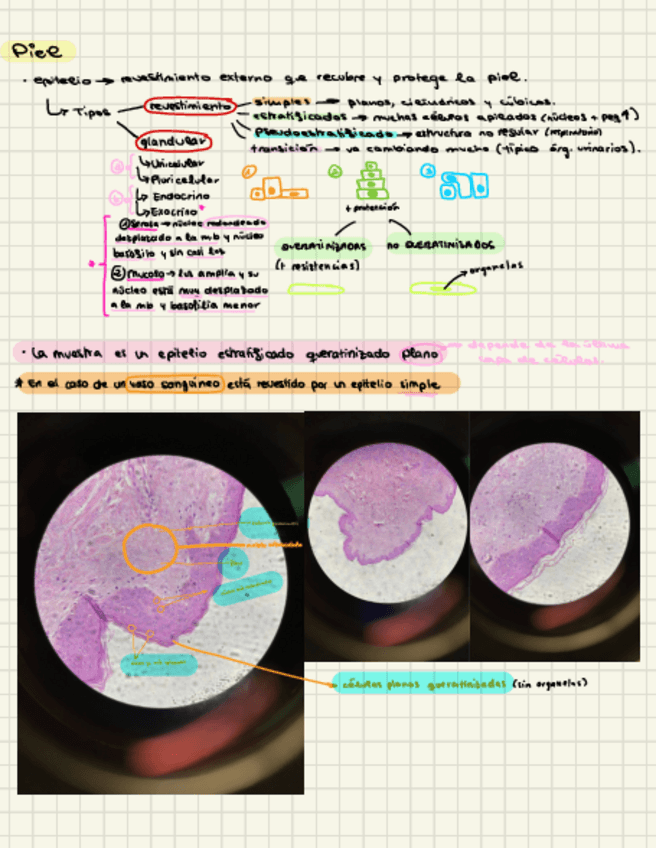 Piel
· epitelio → revestimiento externo que recubre y protege la piel.
↳ Tipos
revestimiento
simples → planos, cilíndricos y cúbicos.
estratificados → muchas células apiladas (núcleos + peq↑)
pseudoestratificado → estructura no regular (respiratorio)
transición → va cambiando mucho (típico órg. urinarios).
glandular
↳ Unicelular
↳ Pluricelular
↳ Endocrino
↳ Exocrino *
① Serosa → núcleo redondeado
desplazado a la mb y núcleo
basófilo y sin casi luz
② Mucosa → luz amplia y su
núcleo está muy desplazado
a la mb y basofilia menor
① ② ③
+ protección
QUERATINIZADAS
(+ resistencias)
no QUERATINIZADOS
organelas
· La muestra es un epitelio estratificado queratinizado plano
depende de la última
capa de células.
* En el caso de un vaso sanguíneo está revestido por un epitelio simple
células planas queratinizadas (sin organelas)